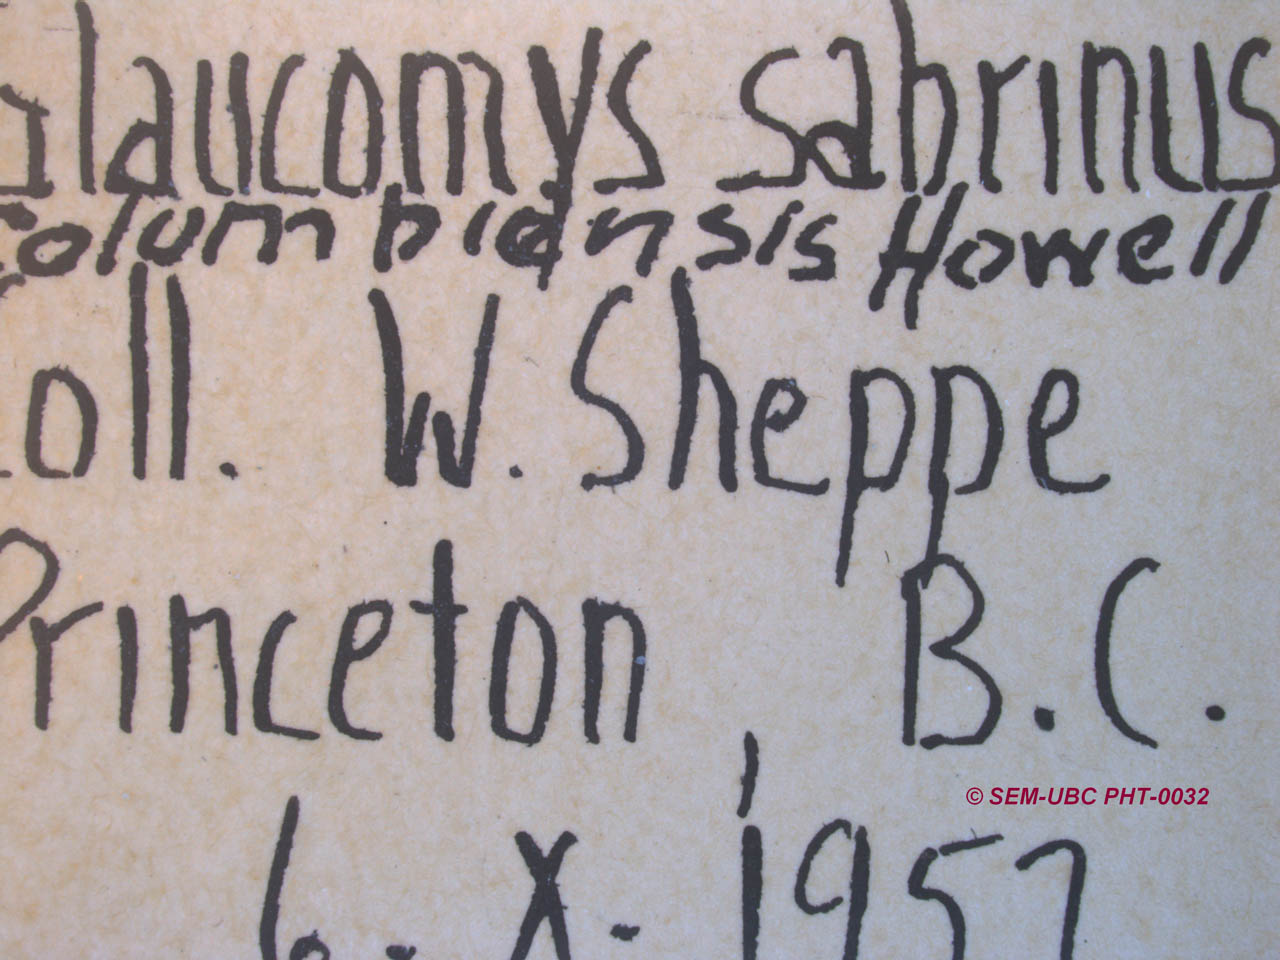 Glaucomys sabrinus
Columbiansis Howell
Coll. W. Sheppe
Princeton, B.C.
© SEM-UBC PHT-0032
6-X-1957